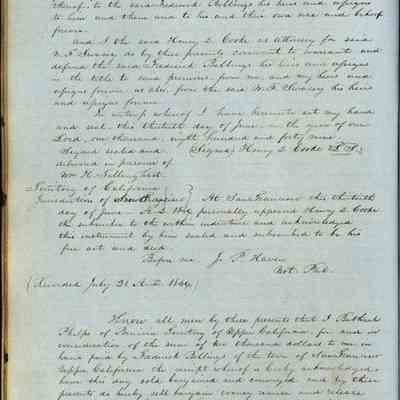 thereof, to the said Frederick Billings his heirs and assigns
to him and them and to his and their own use and behoof
forever.
And I the said Henry D. Cooke as attorney for said
do by these presents covenant to warrant and
defend the said Frederick Billings his heirs and assigns
in the title to said premises from me, and my heirs and
assigns forever as also from the said his heirs
and assigns forever.
In witness whereof I have hereunto set my hand
and seal, this thirtieth day of June in the year of our
Lord, one thousand, eight hundred and forty nine
Signed sealed and (Signed) Henry D. Cooke L.S.
delivered in presence of
Wm H.
Territory of California
Jurisdiction of San Francisco At San Francisco this thirtieth
day of June A.D. personally appeared Henry D. Cooke
the subscriber to the within indenture and acknowledged
this instrument by him sealed and subscribed to be his
free act and deed
Before me J. P. Haven
Not. Pub.
(Recorded July 31 A.D.
Know all men by these presents that I
Phelps of Benicia Territory of Upper California, for and in
consideration of the sum of dollars to me in
hand paid by Frederick Billings of the town of San Francisco
Upper California the receipt whereof is hereby acknowledged,
have this day sold bargained and conveyed and by these
presents do hereby sell bargain convey and release